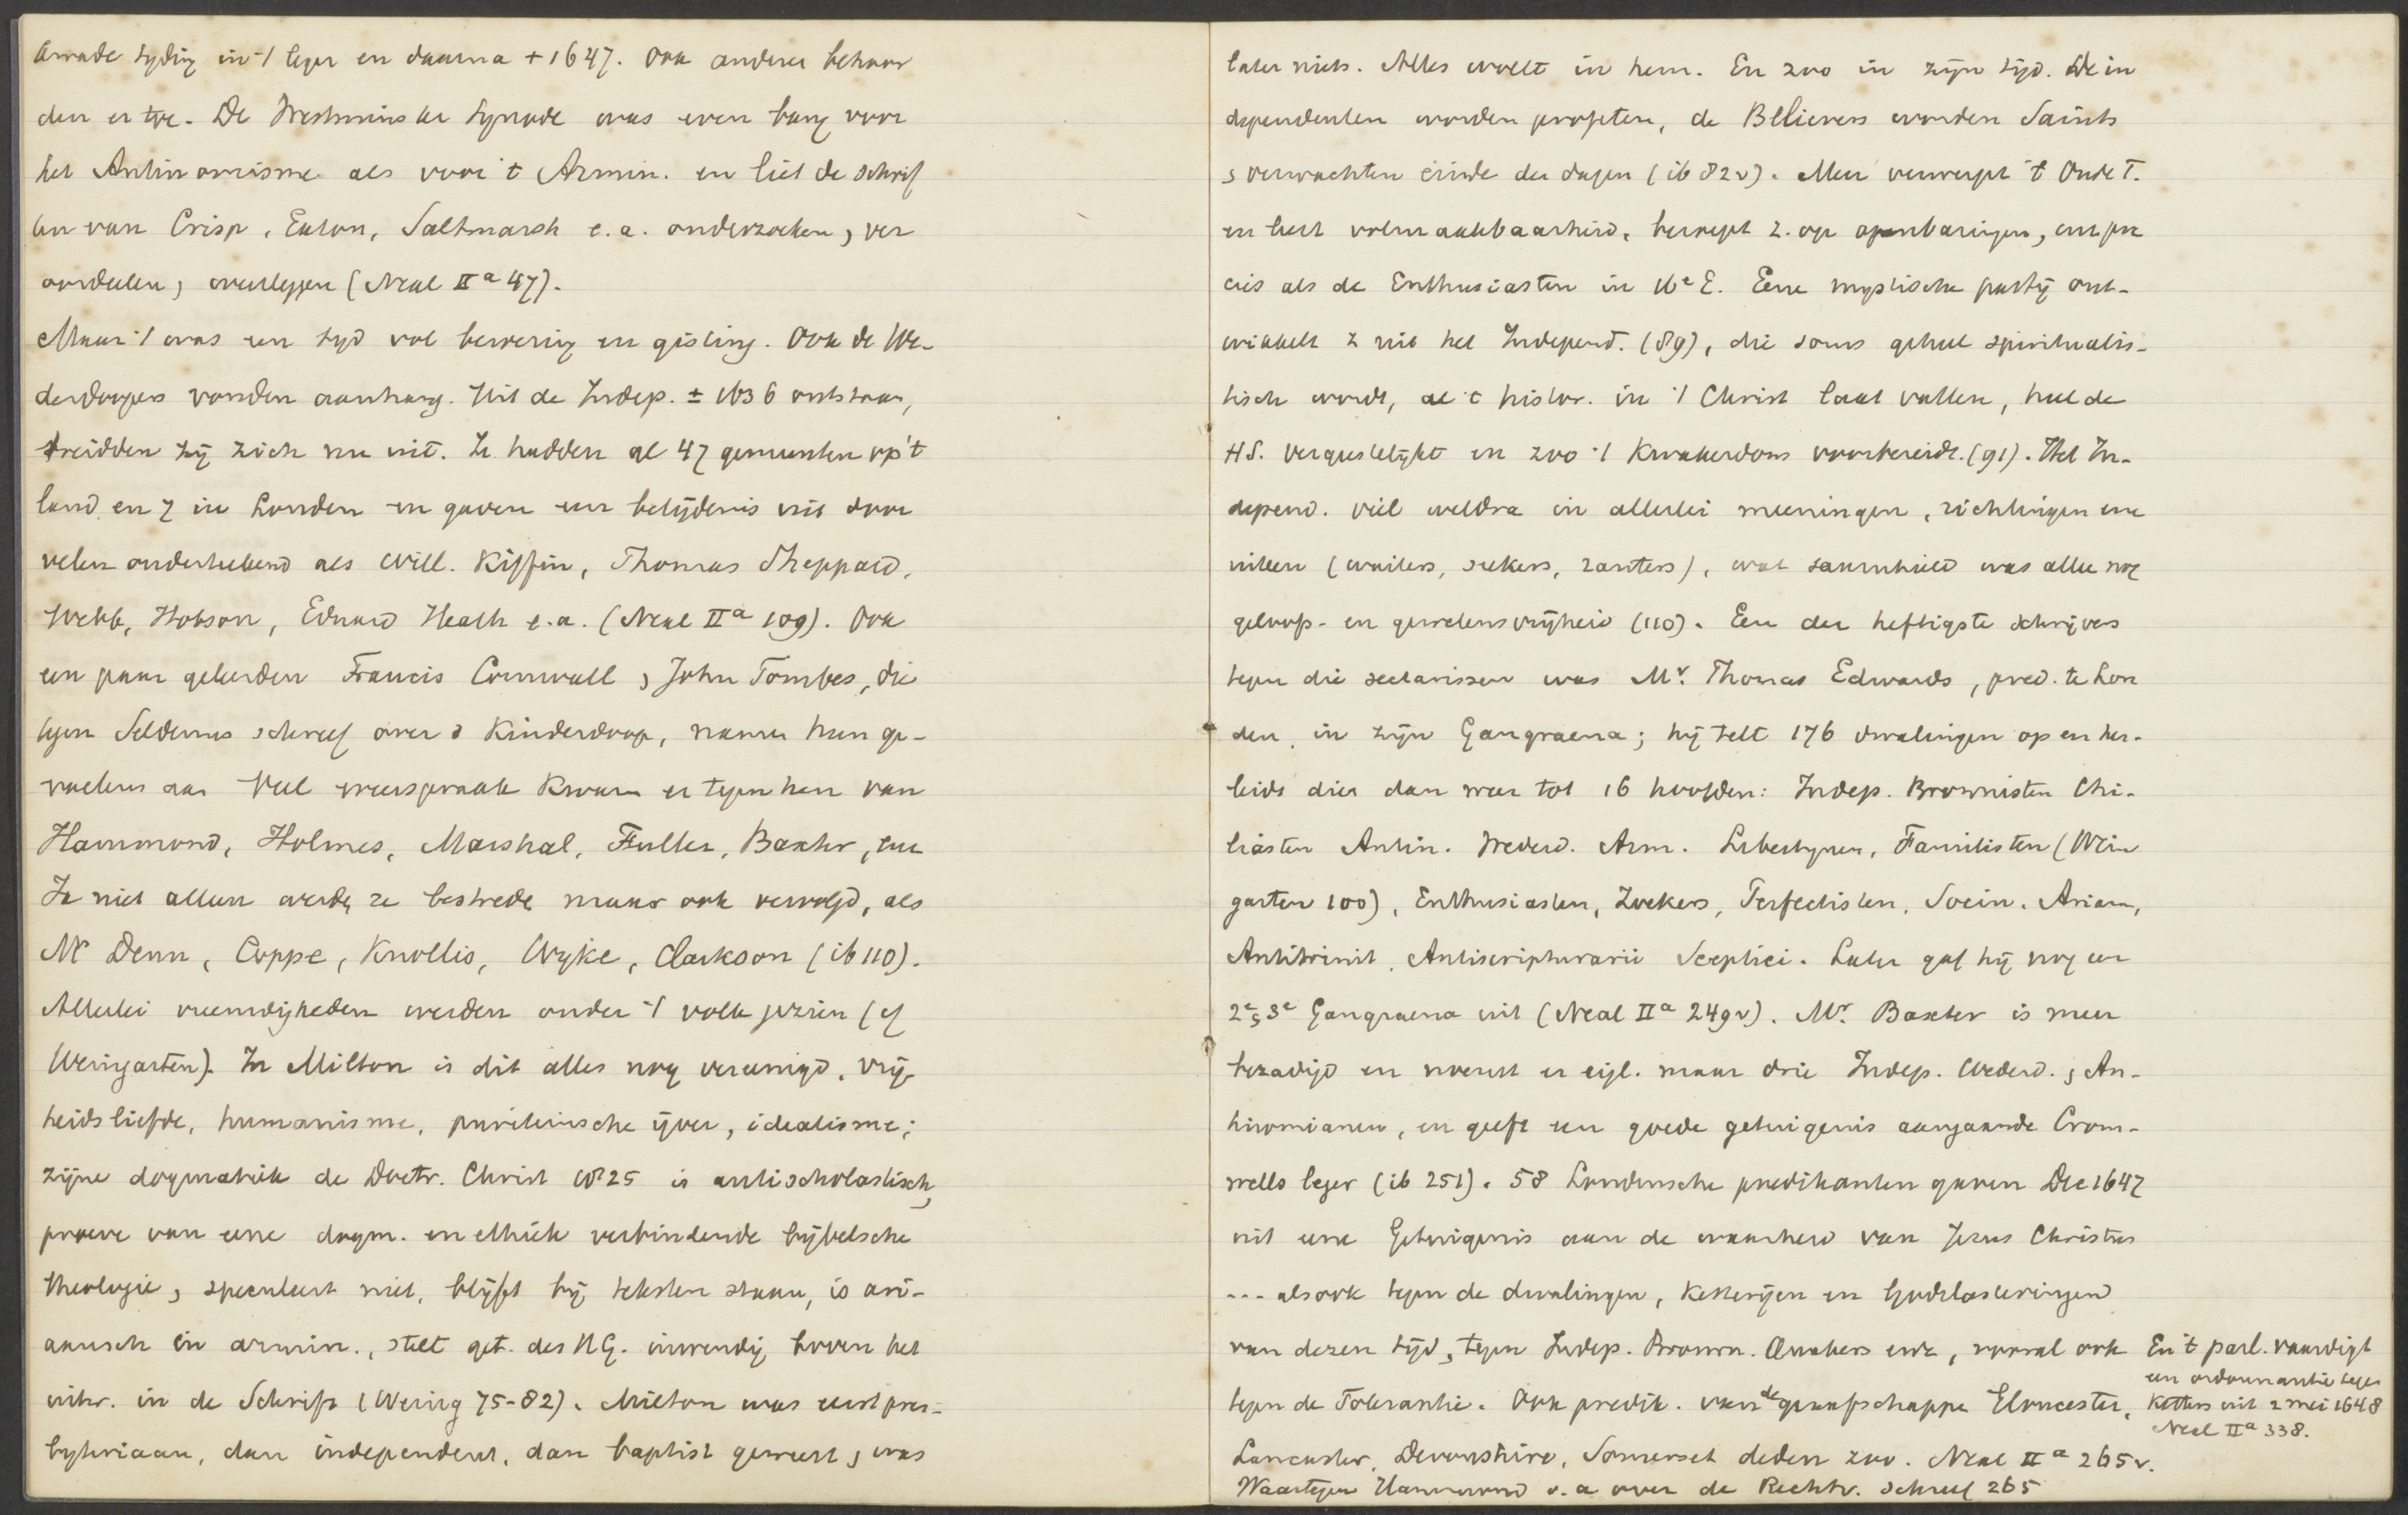 tydig in 't leger en daarna + 1647. Ook andere behoor
den er toe. De Westminster Synode was even bang voor
het Antinomisme als voor 't Armin. en liet de schrif
ten van Crisp, Eaton, Saltmarsh e.a. onderzoeken, ver
oordeelen, weerleggen (Neal IIa 47).
Maar 't was een tyd vol beroering en gisting. Ook de We-
derdoopers vonden aanhang. Uit de Indep. ± 1636 ontstaan,
breidden zij zich nu uit. Ze hadden al 47 gemeenten op 't
land en 7 in Londen en gaven een belijdenis uit door
velen onderteekend als Will. Kiffin, Thomas Sheppard,
Webb, Hobson, Eduard Heath e.a. (Neal IIa 109). Ook
een paar geleerden Francis Cornwall, John Tombes, die
tegen Seldenus schreef over d Kinderdoop, namen hun ge-
voelens aan Veel weerspraak kwam er tegen hen van
Hammond, Holmes, Marshal, Fuller, Baxter, enz
Ja niet alleen werdn ze bestrede maar ook vervolgd, als
Mr Denn, Coppe, Knollis, Wyke, Clarkson (ib 110).
Allerlei vreemdigheden werden onder 't volk gezien (cf
Weingarten). In Milton is dit alles nog vereenigd. Vrij-
heidsliefde, humanisme, puriteinsche ijver, idealisme;
zijne dogmatiek de Doctr. Christ 1825 is antischolastisch,
proeve van eene dogm. en ethiek verbindende bijbelsche
theologie, speculeert niet, blijft bij teksten staan, is ari-
aansch en armin., stelt get. des H.G. inwendig boven het
uitw. in de Schrift (Weing 75-82). Milton was eerst pres-
byteriaan, dan independent, dan baptist geweest, was
later niets. Alles woelt in hem. En zoo in zijn tijd. De in
dependenten worden profeten, de Believers worden Saints
, verwachten einde der dagen (ib 82v). Men verwerpt 't Oude T.
en leert volmaakbaarheid, beroept z. op openbaringen, enz pre
cies als de Enthusiasten in 16e E. Eene mystische partij ont-
wikkelt z uit het Independ. (89), die soms geheel spiritualis-
tisch wordt, al 't histor. in 't Christ laat vallen, heel de
H.S. vergeestelijkt en zoo 't Kwakerdom voorbereidt. (91). Het In-
depend. viel weldra in allerlei meeningen, richtingen enz
uiteen (waiters, seekers, ranters), wat saamhield was allee nog
geloofs- en gewetensvrijheid (110). Een der heftigste schrijvers
tegen die sectarissen was Mr. Thomas Edwards, pred. te Lon
den, in zijn Gangraena; hij telt 176 dwalingen op en her-
leidt dier dan weer tot 16 hoofden: Indep. Brownisten Chi-
liasten Antin. Wederd. Arm. Libertynen, Familisten (Wein
garten 100), Enthusiasten, Zoekers, Perfectisten, Socin. Arian,
Antitrinit, Antiscripturarii Sceptici. Later gaf hij nog een
2e, 3e Gangraena uit (Neal IIa 249v). Mr. Baxter is meer
bezadigd en noemt er eigl. maar drie Indep. Wederd., An-
tinomianen, en geeft een goede getuigenis aangaande Crom-
wells leger (ib 251). 58 Londensche predikanten gaven Dec 1647
uit eene Getuigenis aan de waarheid van Jezus Christus
... alsook tegen de dwalingen, ketterijen en Godslasteringen
van dezen tijd, tegen Indep. Brown. Quakers enz, vooral ook
tegen de Tolerantie. Ook predik. van de graafschappe Gloucester,
Lancaster, Devonshire, Somerset deden zoo. Neal IIa 265v.
Waartegen Hammond o.a over de Rechtv. schreef 265
En 't parl. vaardigt
een ordonnantie tegen
Ketters uit 2 mei 1648
Neal IIa 338.